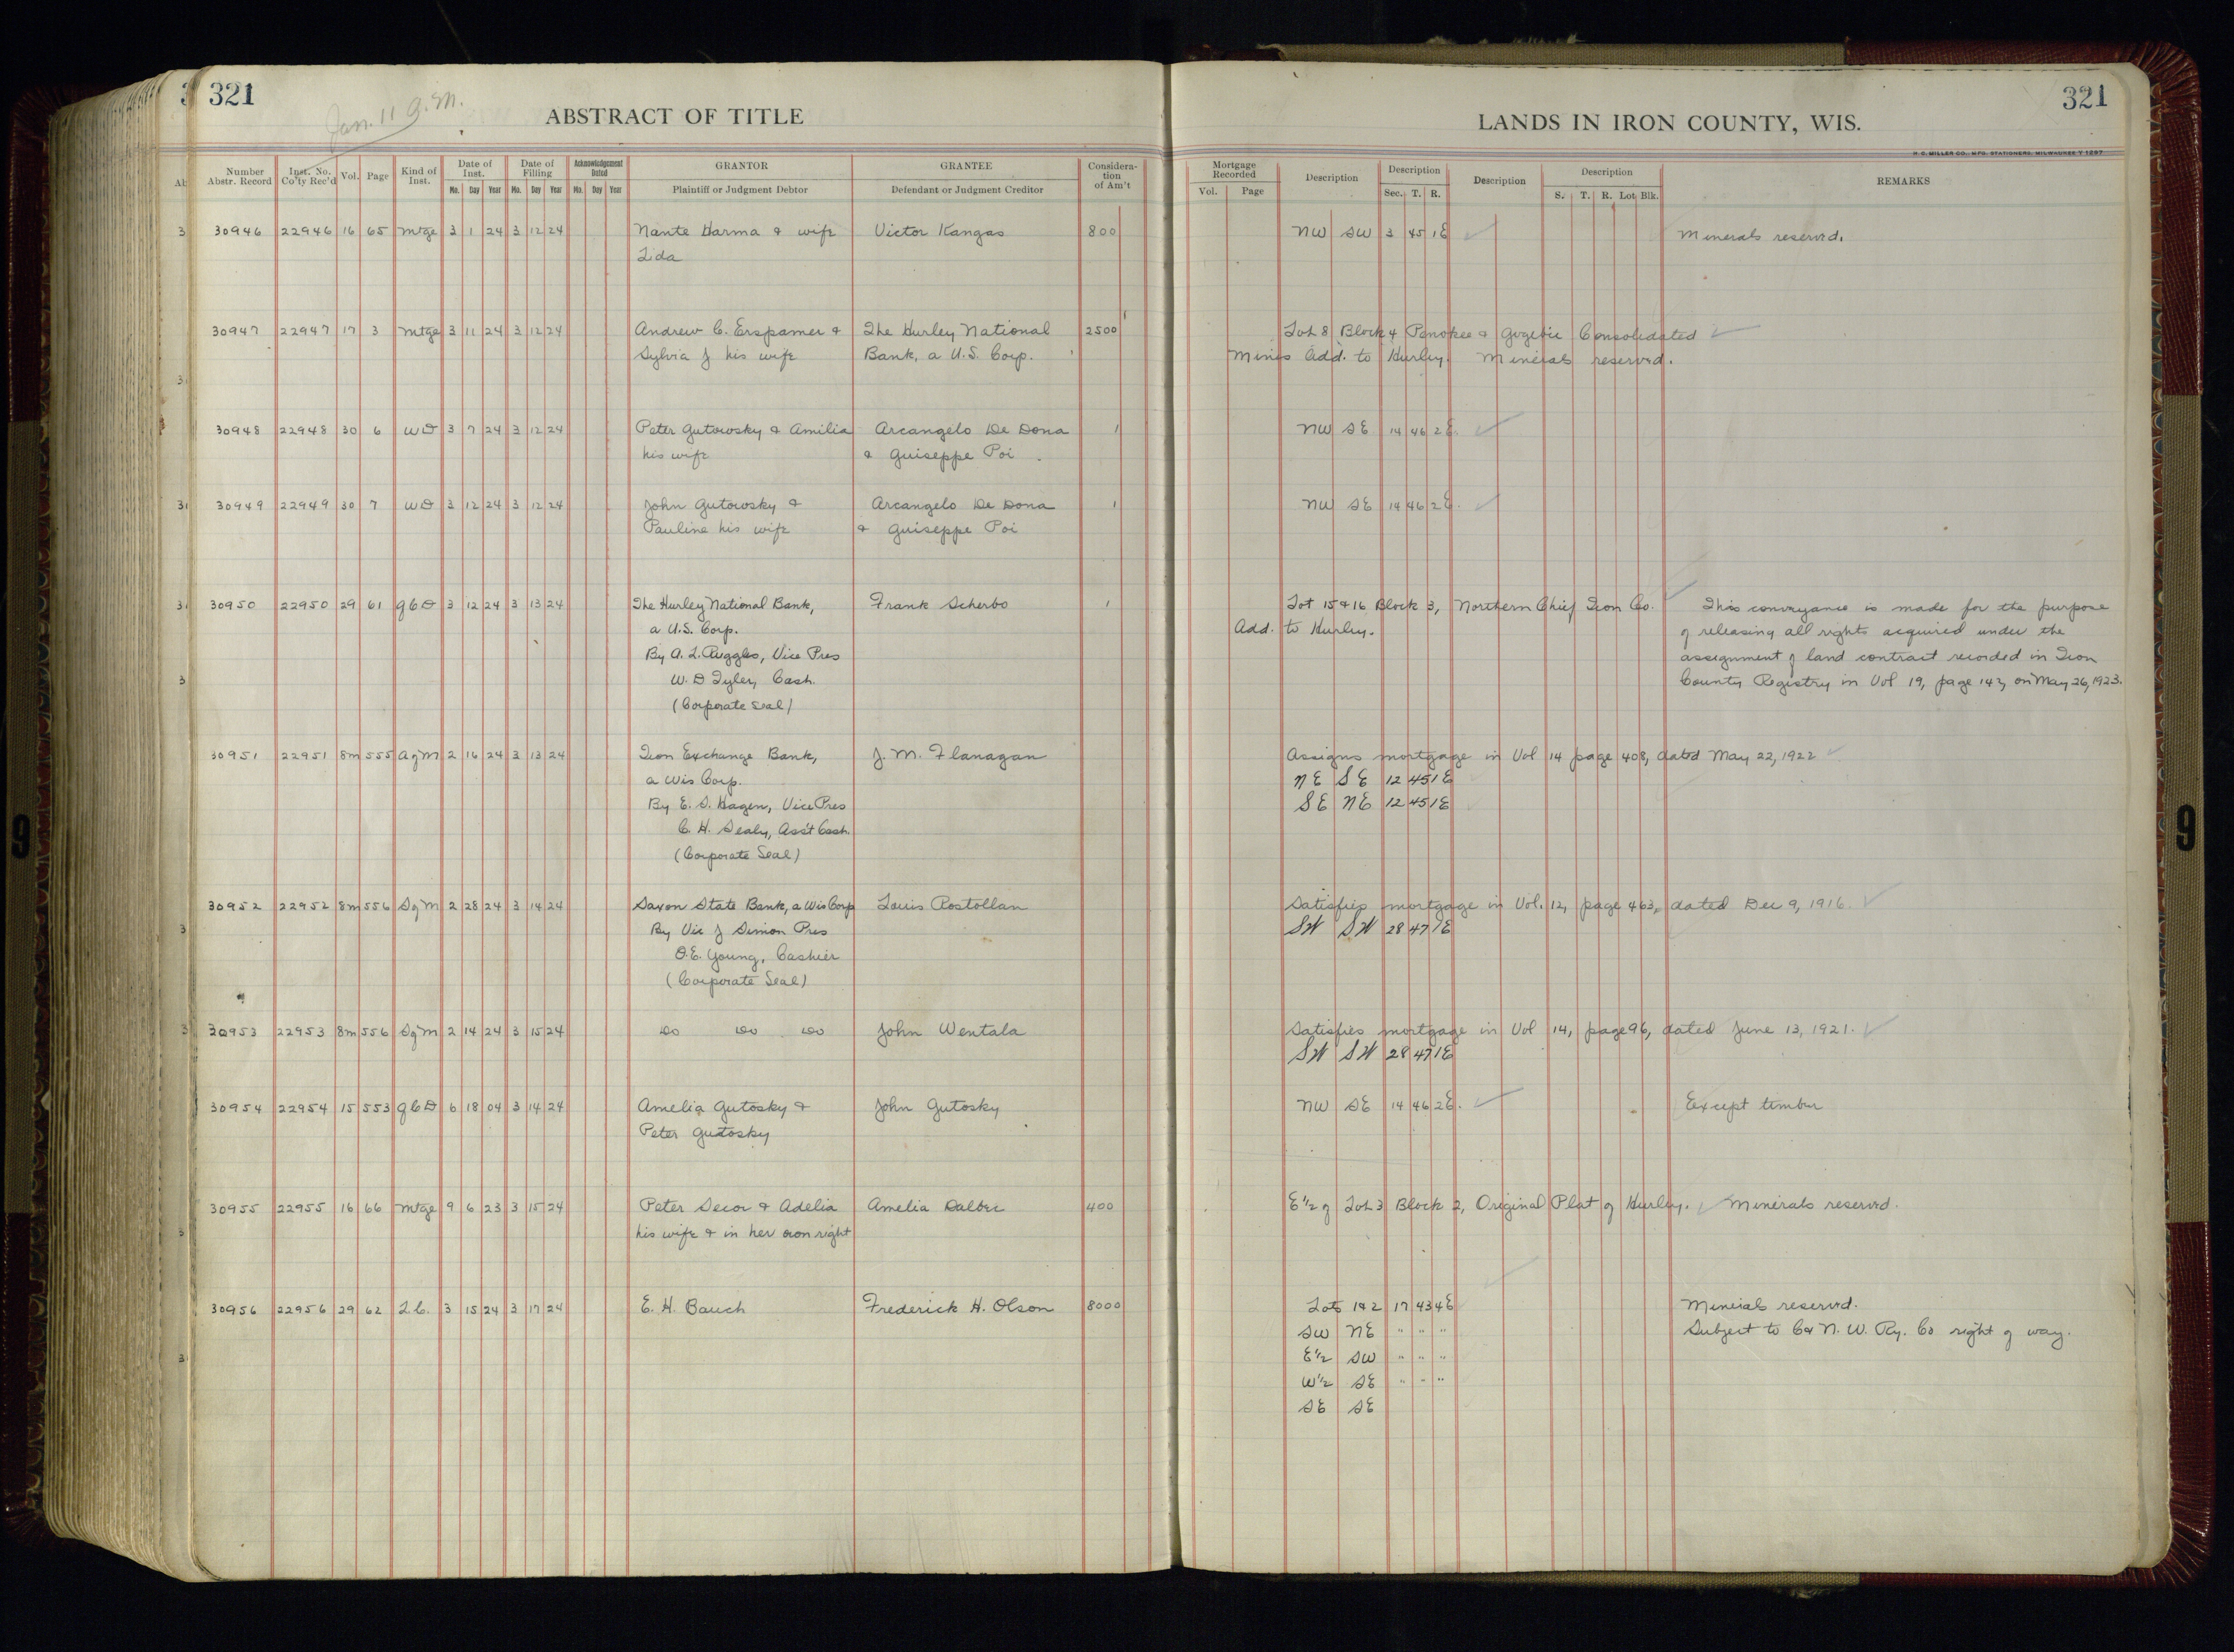 321
Jan. 11 a.m.
ABSTRACT OF TITLE
Number Abstr. Record Inst. No. Co'ty Rec'd Vol. Page Kind of Inst. Date of Inst. Mo. Day Year Date of Filling Mo. Day Year Acknowledgement Dated Mo. Day Year GRANTOR Plaintiff or Judgment Debtor GRANTEE Defendant or Judgment Creditor Consideration of Am't
30946 22946 16 65 Mtge 3 1 24 3 12 24 Nante Harma & wife Victor Kangas 800
Lida
30947 22947 17 3 Mtge 3 11 24 3 12 24 Andrew C. Erspamer & The Hurley National 2500
Sylvia J his wife Bank, a U.S. Corp.
30948 22948 30 6 WD 3 7 24 3 12 24 Peter Gutowsky & Amilia Arcangelo De Dona 1
his wife & Guiseppe Poi
30949 22949 30 7 WD 3 12 24 3 12 24 John Gutowsky & Arcangelo De Dona 1
Pauline his wife & Guiseppe Poi
30950 22950 29 61 QCD 3 12 24 3 13 24 The Hurley National Bank, Frank Scherbo 1
a U.S. Corp.
By A. L. Ruggles, Vice Pres
W. D Tyler, Cash.
(Corporate seal)
30951 22951 8m 555 A of M 2 16 24 3 13 24 Iron Exchange Bank, J. M. Flanagan
a Wis Corp.
By E. S. Hagen, Vice Pres
C. H. Sealy, Ass't Cash.
(Corporate Seal)
30952 22952 8m 556 S of M 2 28 24 3 14 24 Saxon State Bank, a Wis Corp Louis Rostollan
By Vic J Simon Pres
O.E. Young, Cashier
(Corporate Seal)
30953 22953 8m 556 S of M 2 14 24 3 15 24 Do Do Do John Wentala
30954 22954 15 553 QCD 6 18 04 3 14 24 Amelia Gutosky & John Gutosky
Peter Gutosky
30955 22955 16 66 Mtge 9 6 23 3 15 24 Peter Secor & Adelia Amelia Dalbec 400
his wife & in her own right
30956 22956 29 62 L.C. 3 15 24 3 17 24 E. H. Bauch Frederick H. Olson 8000
321
LANDS IN IRON COUNTY, WIS.
H. C. MILLER CO., MFG. STATIONERS, MILWAUKEE
Mortgage Recorded Vol. Page Description Description Sec. T. R. Description Description S. T. R. Lot Blk. REMARKS
NW SW 3 45 1E Minerals reserved.
Lot 8 Block 4 Penokee & Gogebic Consolidated
Mines Add. to Hurley. Minerals reserved.
NW SE 14 46 2E.
NW SE 14 46 2E.
Lot 15 & 16 Block 3, Northern Chief Iron Co. This conveyance is made for the purpose
Add. to Hurley. of releasing all rights acquired under the
assignment of land contract recorded in Iron
County Registry in Vol 19, page 142, on May 26, 1923.
Assigns mortgage in Vol 14 page 408, dated May 22, 1922
NE SE 12 45 1E
SE NE 12 45 1E
Satisfies mortgage in Vol. 12, page 463, dated Dec 9, 1916.
SW SW 28 47 1E
Satisfies mortgage in Vol 14, page 96, dated June 13, 1921.
SW SW 28 47 1E
NW SE 14 46 2E. Except timber
E 1/2 of Lot 3 Block 2, Original Plat of Hurley. Minerals reserved.
Lots 1 & 2 17 43 4E Minerals reserved.
SW NE " " " Subject to C & N. W. Ry. Co right of way.
E 1/2 SW " " "
W 1/2 SE " " "
SE SE
9
9